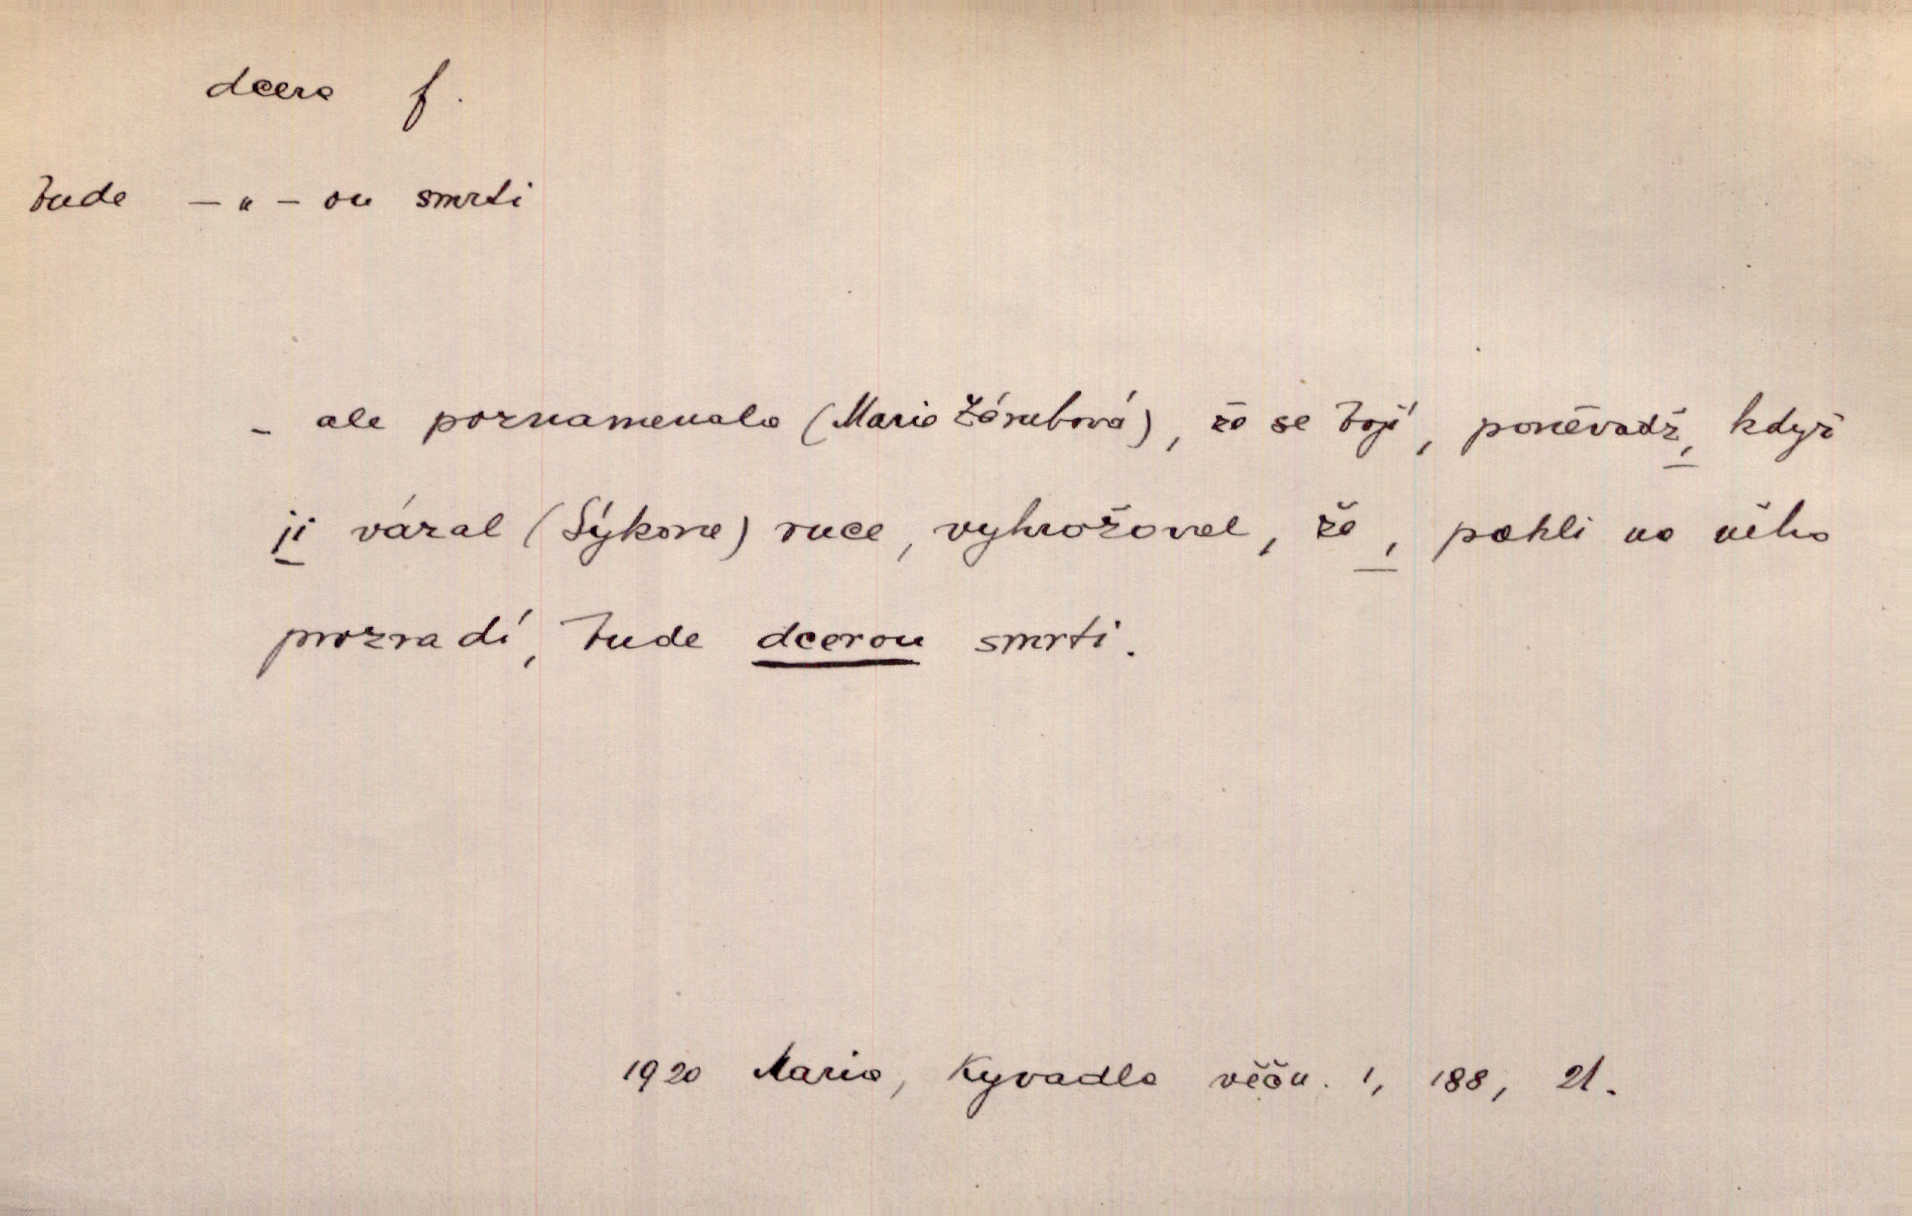 dcera f.
bude — " — ou smrti
- ale poznamenala (Maria Zárubová), že se bojí, poněvadž, když
jí vázal (Sýkora) ruce, vyhrožoval, že, pakli na něho
prozradí, bude dcerou smrti.
1920 Maria, Kyvadlo věčn. 1, 188, 21.